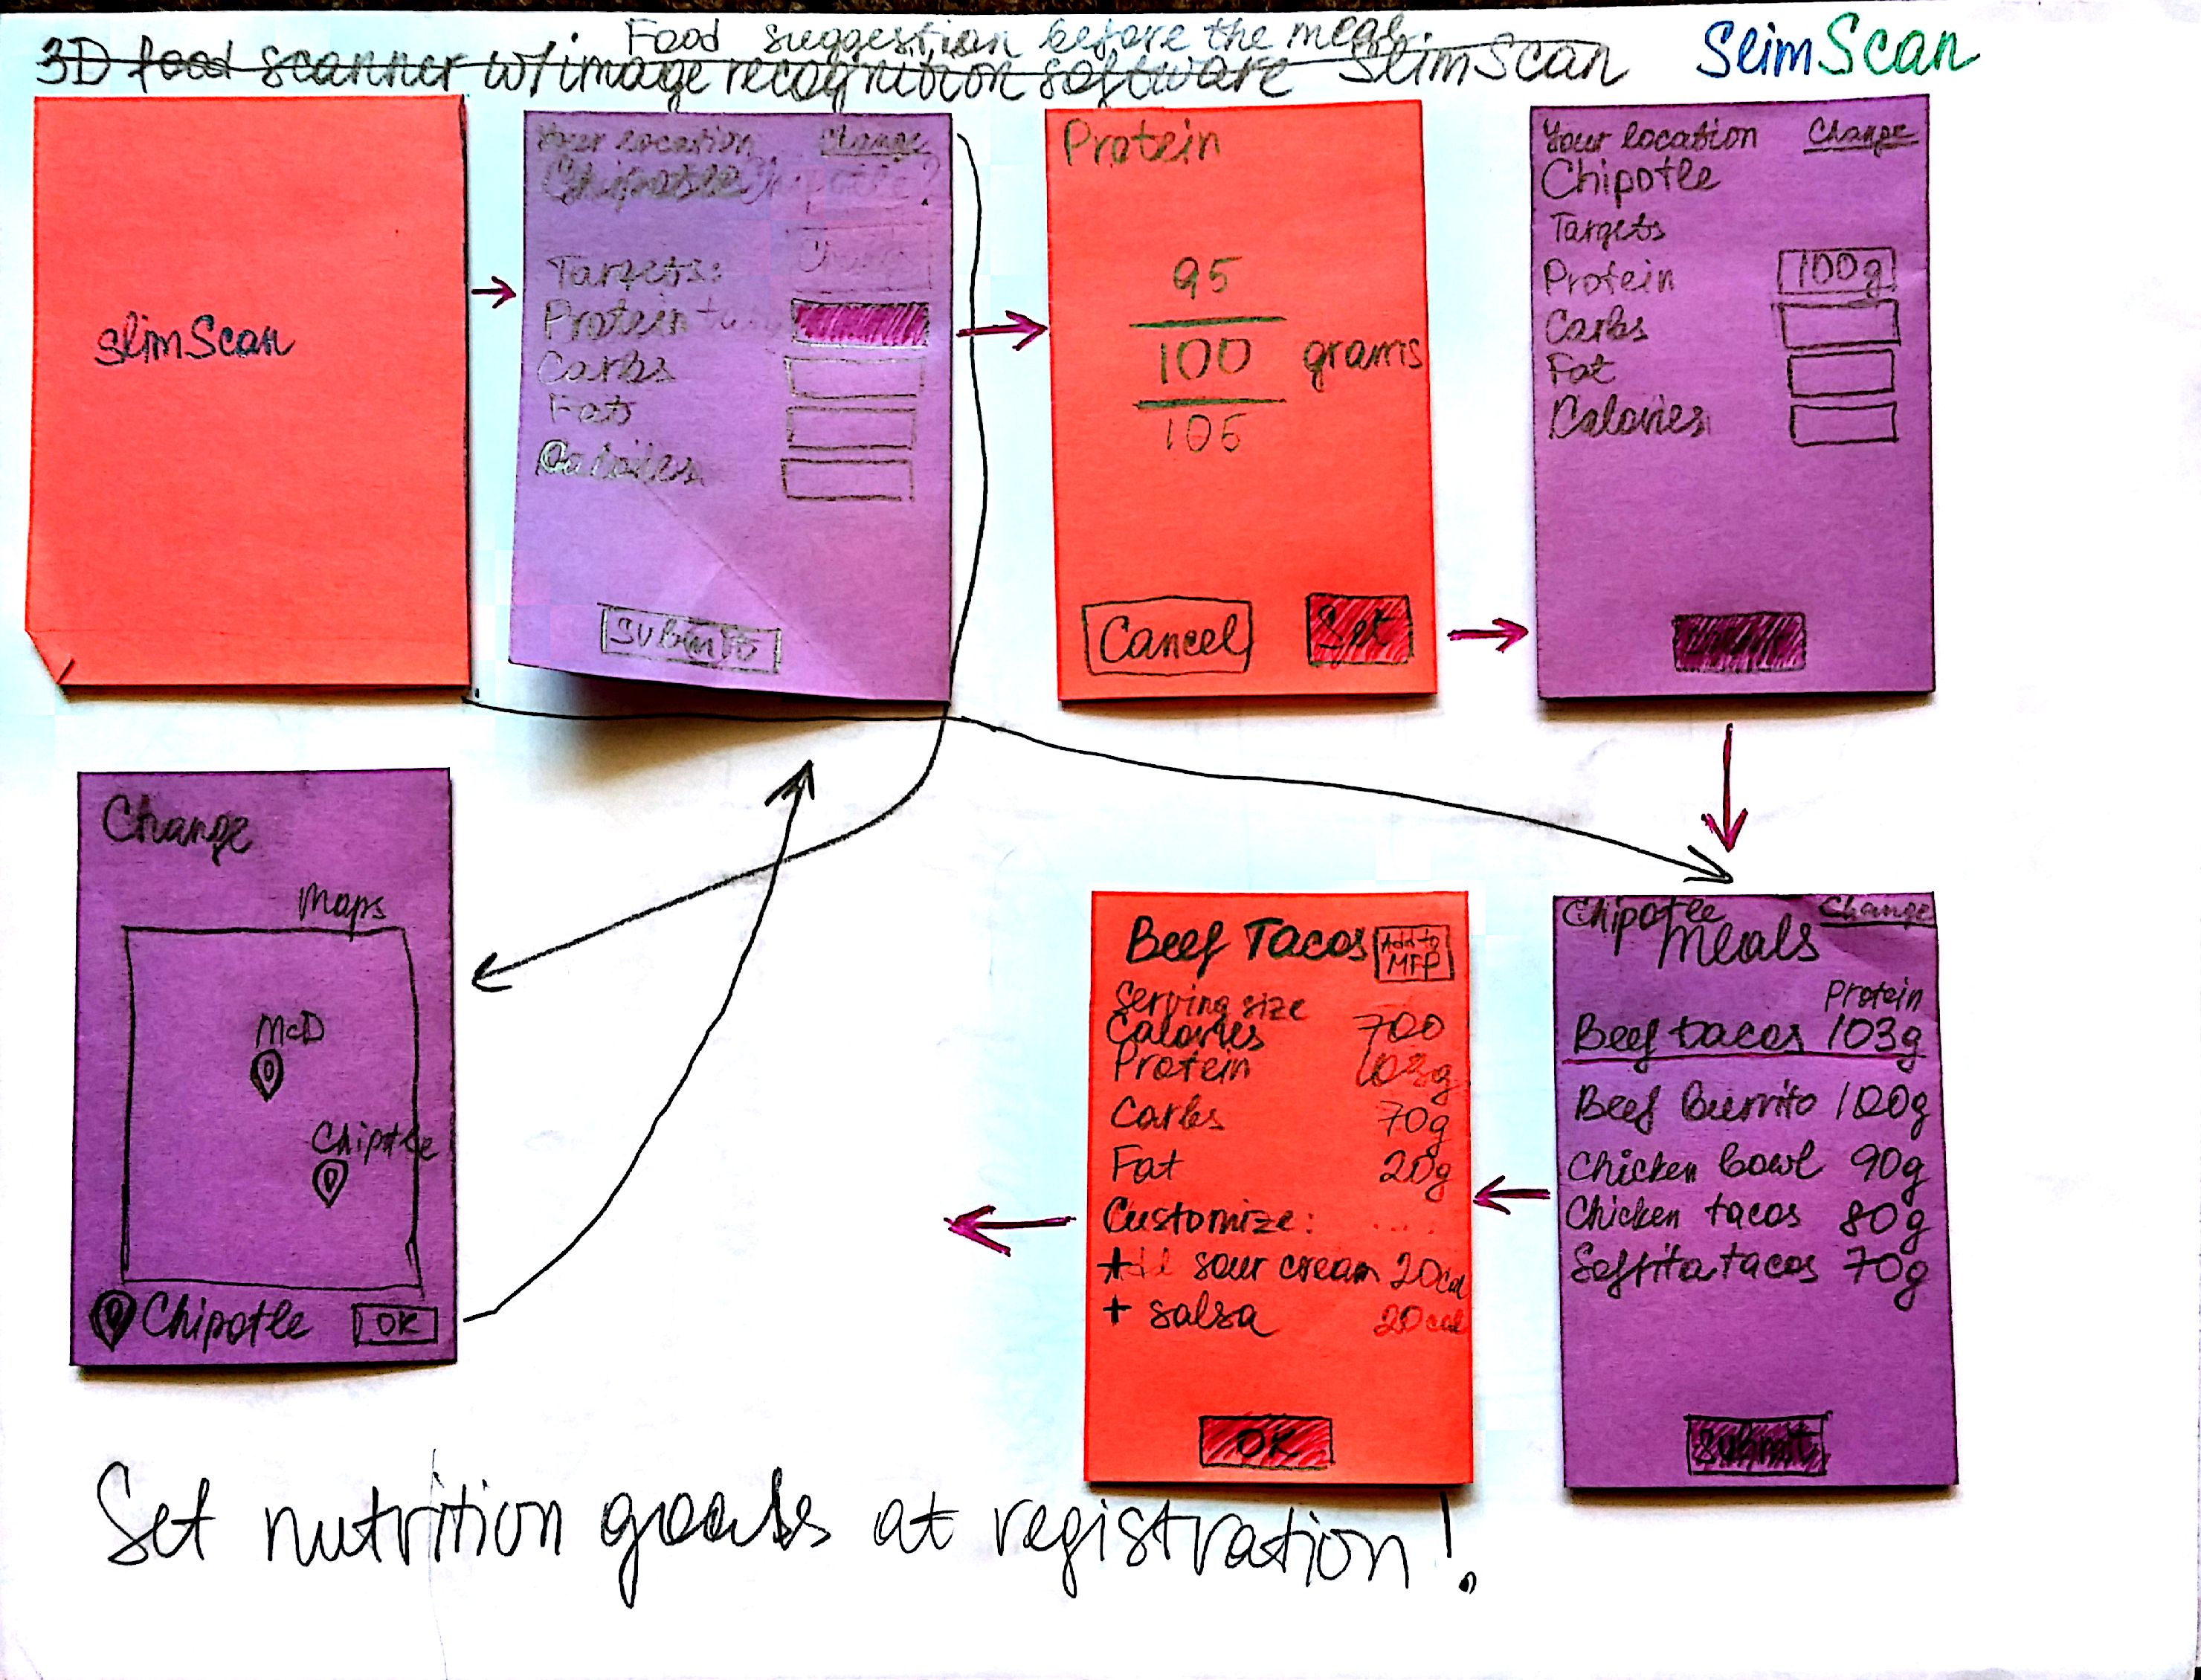 Food suggestion before the meal.
3D food scanner w/image recognition software SlimScan
SlimScan
slimScan
Your location Change
Chipotle Chipotle?
Change
Targets:
Protein
Carbs
Fats
Calories
Submit
Protein
95
100 grams
105
Cancel
Set
Your location Change
Chipotle
Targets
Protein 100g
Carbs
Fat
Calories
Change
Maps
McD
Chipotle
Chipotle OK
Beef Tacos Add to MFP
Serving size
Calories 700
Protein 103g
Carbs 70g
Fat 20g
Customize: ....
+ sour cream 20cal
+ salsa 20cal
OK
Chipotle Change
Meals
Protein
Beef tacos 103g
Beef Burrito 100g
Chicken bowl 90g
Chicken tacos 80g
Soffita tacos 70g
Submit
Set nutrition goals at registration!